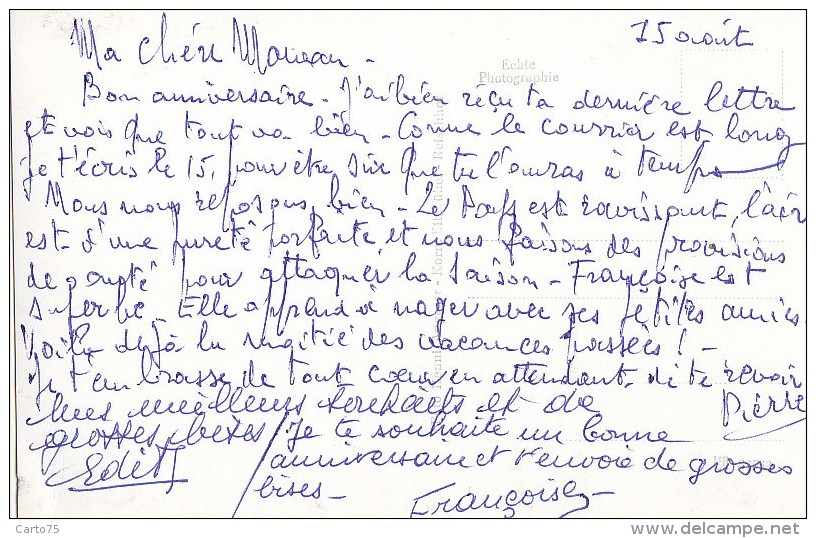 15 août
Ma chère Maman -
Echte
Photographie
Bon anniversaire - J'ai bien reçu ta dernière lettre
et vois que tout va bien - Comme le courrier est long
je t'écris le 15, pour être sûr que tu l'auras à temps
Nous nous reposons bien - Le Pays est ravissant, l'air
est d'une pureté parfaite et nous faisons des provisions
de santé pour attaquer la saison - Françoise est
superbe - Elle apprend à nager avec ses petites amies
Voilà déjà la moitié des vacances passées ! -
Je t'embrasse de tout coeur en attendant de te revoir
Pierre
mes meilleurs souhaits et de
grosses bises
Edith
je te souhaite un bonne
anniversaire et t'envoie de grosses
bises -
Françoise
Carto75